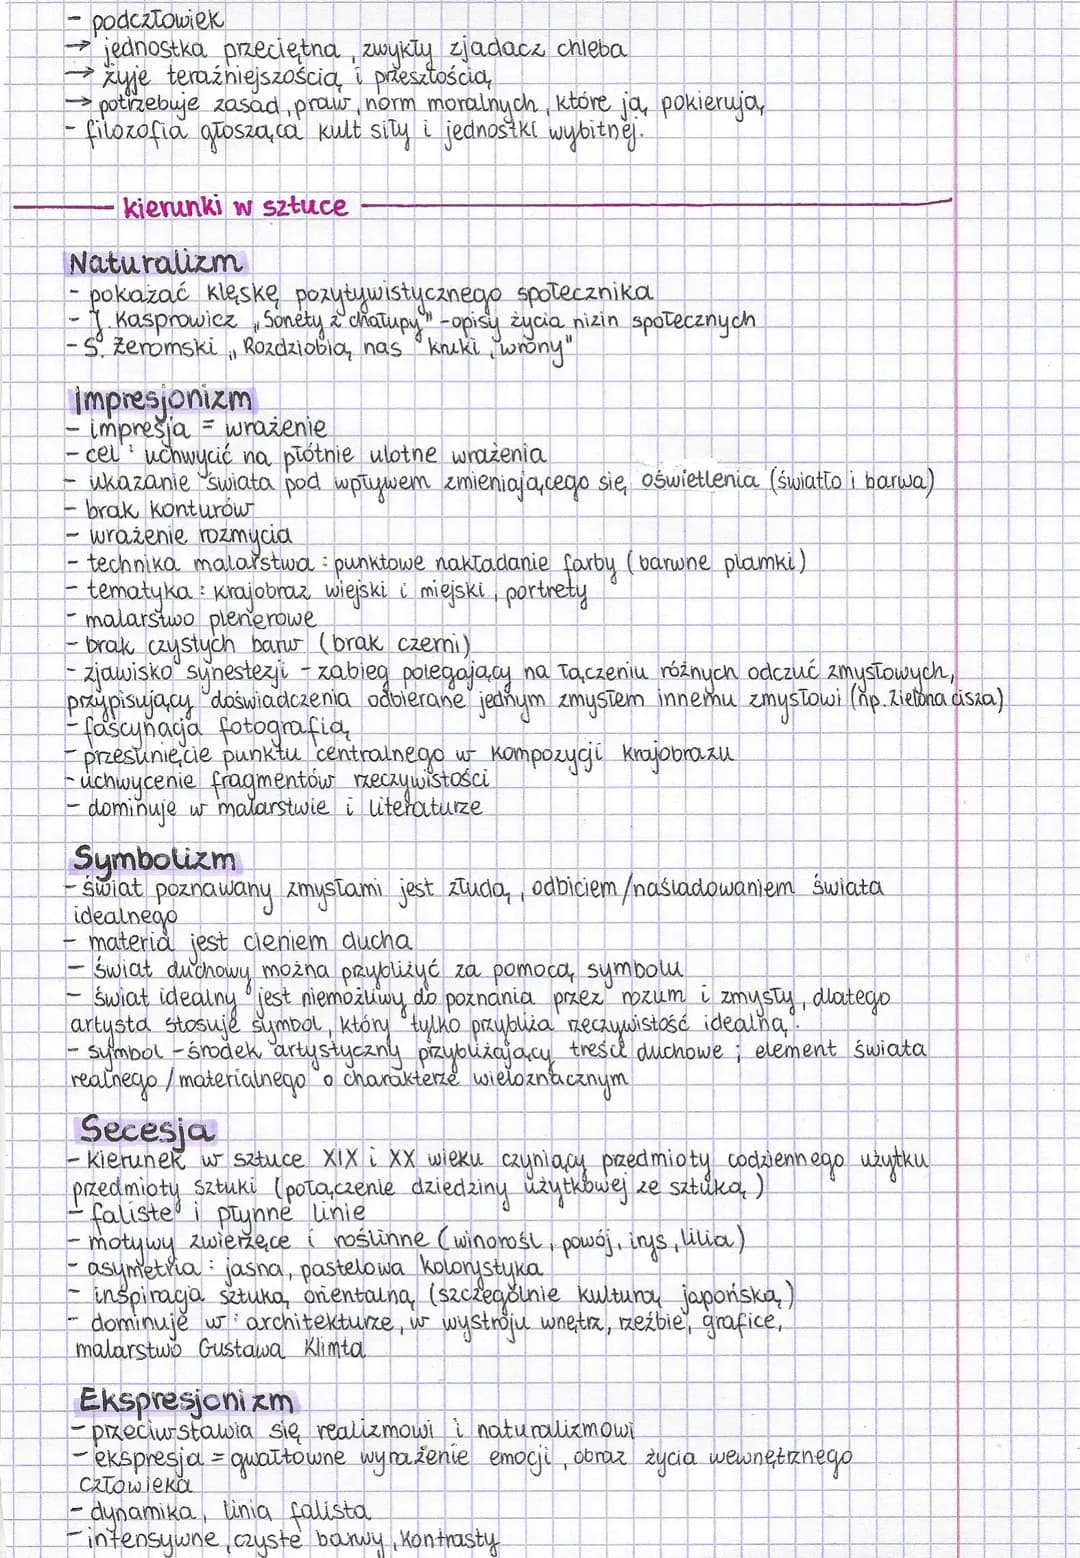 - podczłowiek
→ jednostka przeciętna, zwykły zjadacz chleba
→ żyje teraźniejszością i przeszłością
→ potrzebuje zasad, praw, norm moralnych, które ją pokierują
- filozofia głosząca kult siły i jednostki wybitnej.
kierunki w sztuce
Naturalizm
- pokazać klęskę pozytywistycznego społecznika
- J. Kasprowicz „Sonety z chałupy" - opisy życia nizin społecznych
- S. Żeromski „Rozdziobią nas kruki, wrony"
Impresjonizm
- impresja = wrażenie
- cel: uchwycić na płótnie ulotne wrażenia
- ukazanie świata pod wpływem zmieniającego się oświetlenia (światło i barwa)
- brak konturów
- wrażenie rozmycia
- technika malarstwa: punktowe nakładanie farby (barwne plamki)
- tematyka: krajobraz wiejski i miejski, portrety
- malarstwo plenerowe
- brak czystych barw (brak czerni)
- zjawisko synestezji - zabieg polegający na łączeniu różnych odczuć zmysłowych,
przypisujący doświadczenia odbierane jednym zmysłem innemu zmysłowi (np. zielona cisza)
- fascynacja fotografią
- przesunięcie punktu centralnego w kompozycji krajobrazu
- uchwycenie fragmentów rzeczywistości
- dominuje w malarstwie i literaturze
Symbolizm
- świat poznawany zmysłami jest złudą, odbiciem/naśladowaniem świata
idealnego
- materia jest cieniem ducha
- świat duchowy można przybliżyć za pomocą symbolu
- świat idealny jest niemożliwy do poznania przez rozum i zmysły, dlatego
artysta stosuje symbol, który tylko przybliża rzeczywistość idealną.
- symbol - środek artystyczny przybliżający treści duchowe; element świata
realnego / materialnego o charakterze wieloznacznym
Secesja
- kierunek w sztuce XIX i XX wieku czyniący przedmioty codziennego użytku
przedmioty sztuki (połączenie dziedziny użytkowej ze sztuką)
- faliste i płynne linie
- motywy zwierzęce i roślinne (winorośl, powój, irys, lilia)
- asymetria: jasna, pastelowa kolorystyka
- inspiracja sztuką orientalną (szczególnie kulturą japońską)
- dominuje w: architekturze, w wystroju wnętrz, rzeźbie, grafice,
malarstwo Gustawa Klimta
Ekspresjonizm
- przeciwstawia się realizmowi i naturalizmowi
- ekspresja = gwałtowne wyrażenie emocji, obraz życia wewnętrznego
człowieka
- dynamika, linia falista
- intensywne, czyste barwy, kontrasty